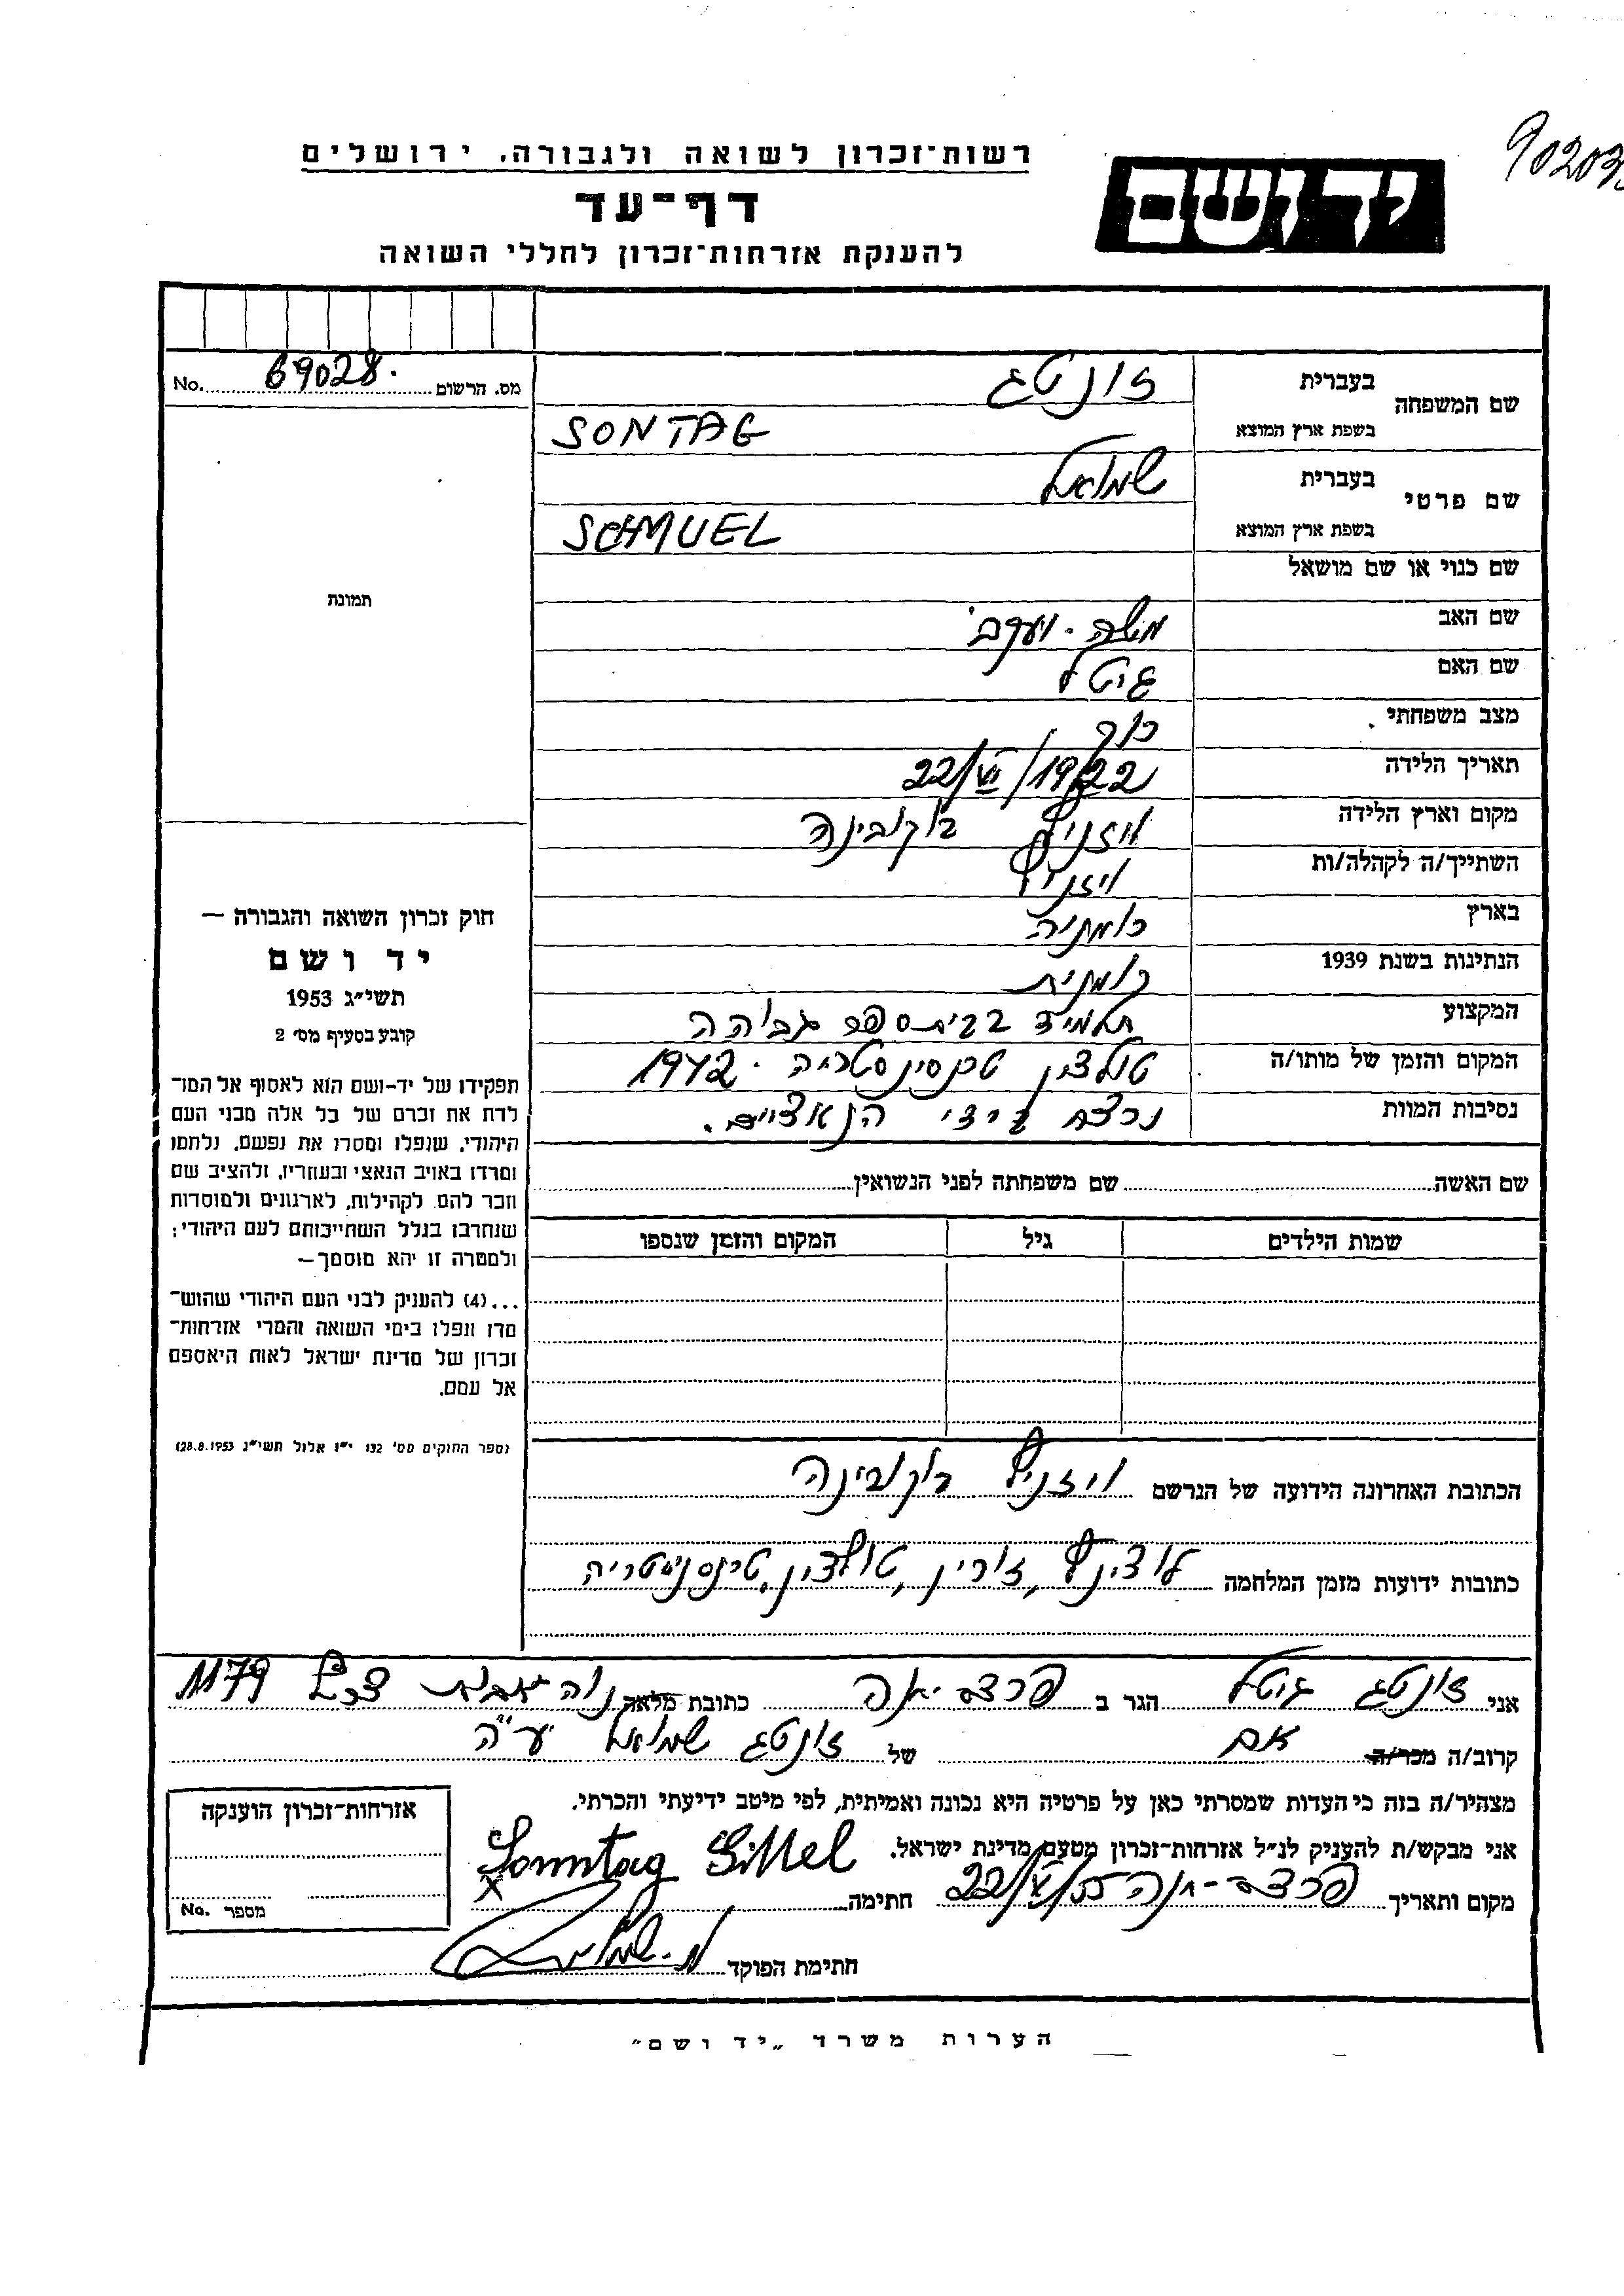 902035
רשות-זכרון לשואה ולגבורה, ירושלים
יד ושם
דף-עד
להענקת אזרחות-זכרון לחללי השואה
מס. הרשום 69028. No.
שם המשפחה
בעברית זונטג
בשפת ארץ המוצא SONTAG
שם פרטי
בעברית שמואל
בשפת ארץ המוצא SCHMUEL
שם כנוי או שם מושאל
תמונה
שם האב משה - יעקב
שם האם גיטל
מצב משפחתי רוק
תאריך הלידה 22/VI/1922
מקום וארץ הלידה ויזניץ בוקובינה
השתייך/ה לקהלה/ות ויזניץ
בארץ רומניה
הנתינות בשנת 1939 רומנית
המקצוע תלמיד בבית ספר גבוהה
המקום והזמן של מותו/ה טולצין טרנסינסטריה 1942
נסיבות המוות נרצח בידי הנאציים.
חוק זכרון השואה והגבורה —
יד ושם
תשי״ג 1953
קובע בסעיף מס׳ 2
תפקידו של יד-ושם הוא לאסוף אל המו־
לדת את זכרם של כל אלה מבני העם
היהודי, שנפלו ומסרו את נפשם, נלחמו
ומרדו באויב הנאצי ובעוזריו, ולהציב שם
וזכר להם, לקהילות, לארגונים ולמוסדות
שנחרבו בגלל השתייכותם לעם היהודי;
ולמטרה זו יהא מוסמך—
...(4) להעניק לבני העם היהודי שהוש־
מדו ונפלו בימי השואה והמרי אזרחות־
זכרון של מדינת ישראל לאות היאספם
אל עמם.
(ספר החוקים מס׳ 132 י״ז אלול תשי״ג 28.8.1953)
שם האשה שם משפחתה לפני הנשואין
שמות הילדים גיל המקום והזמן שנספו
הכתובת האחרונה הידועה של הנרשם ויזניץ בוקובינה
כתובות ידועות מזמן המלחמה לוצינץ, זורין, טולצין, טרנסניסטריה
אני זונטג גיטל הגר ב פרדס-חנה כתובת מלאה נוה אביב 1179
קרוב/ה מכר/ה אם של זונטג שמואל ע״ה
מצהיר/ה בזה כי העדות שמסרתי כאן על פרטיה היא נכונה ואמיתית, לפי מיטב ידיעתי והכרתי.
אני מבקש/ת להעניק לנ״ל אזרחות-זכרון מטעם מדינת ישראל.
מקום ותאריך פרדס-חנה 22/V/55 חתימה Sonntag Gittel
x
חתימת הפוקד
אזרחות-זכרון הוענקה
מספר No.
הערות משרד „יד ושם״